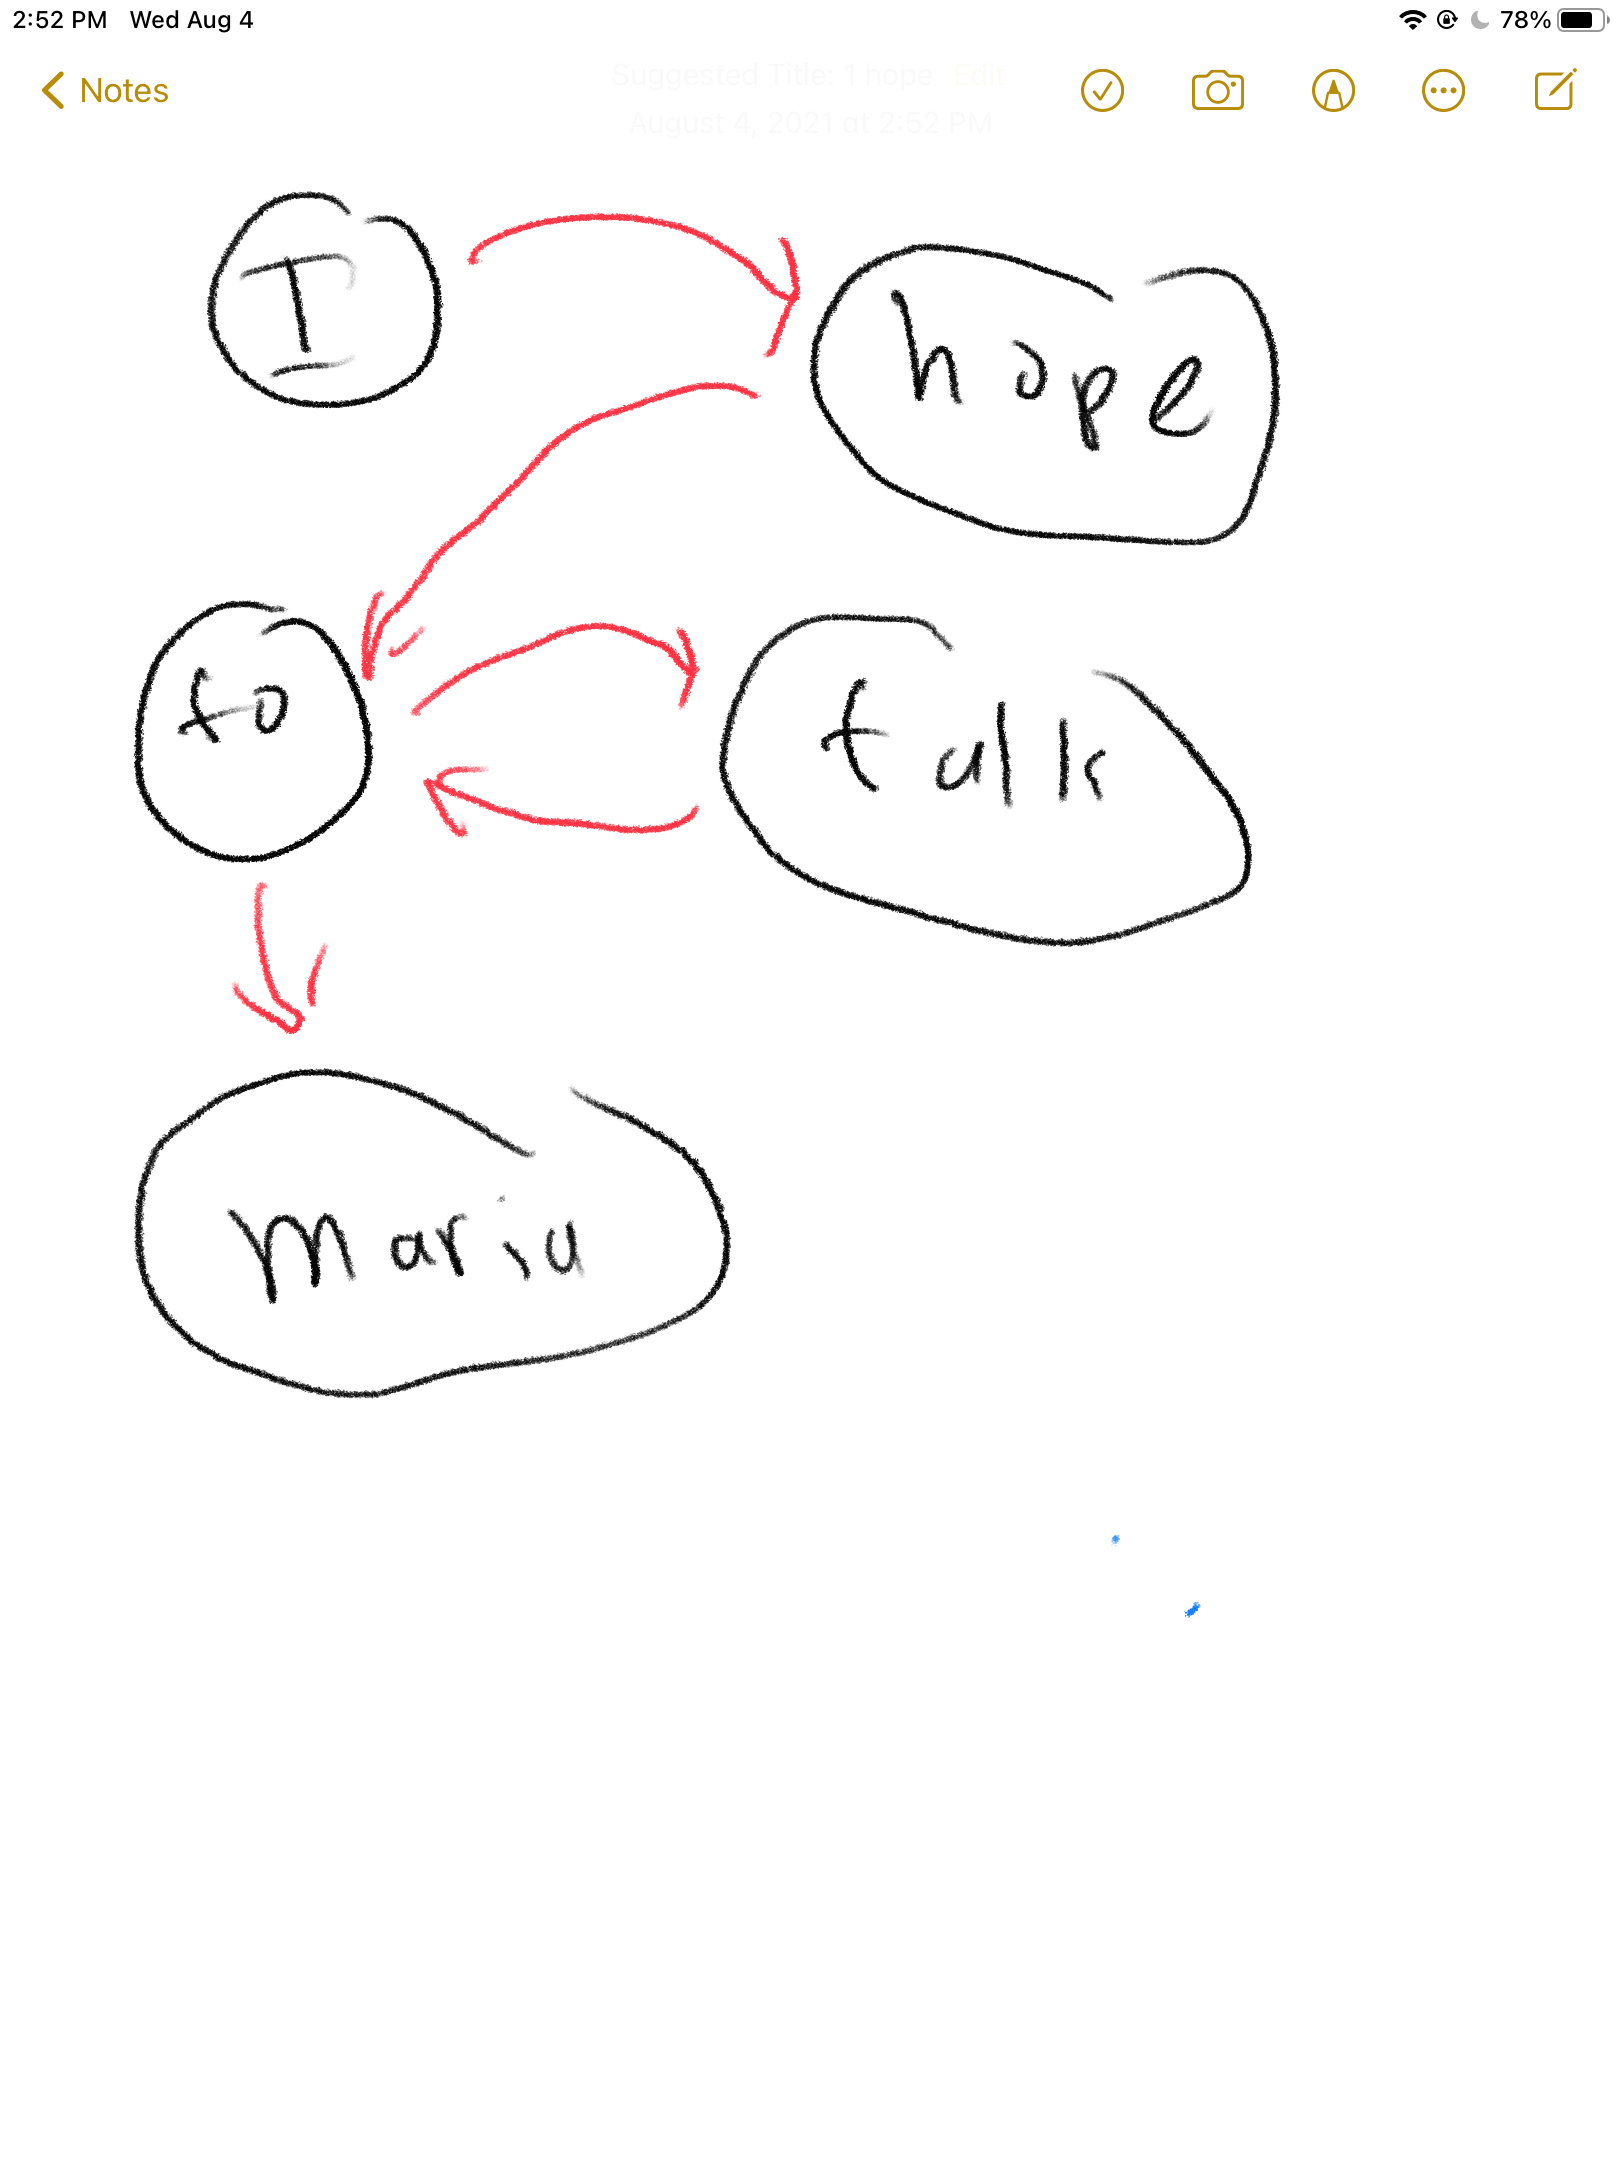 2:52 PM Wed Aug 4 78%
Notes
Suggested Title: 1 hope Edit
August 4, 2021 at 2:52 PM
I
hope
to
talk
Maria